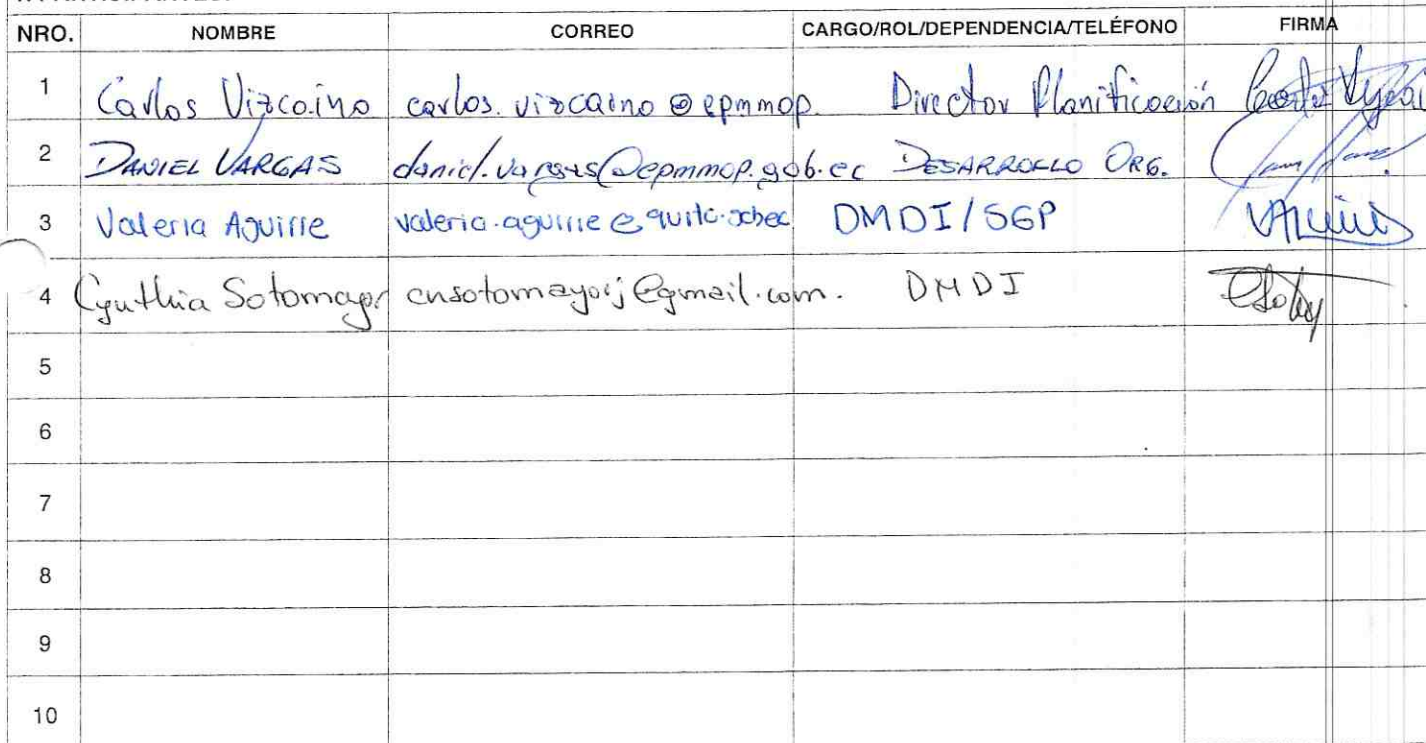 NRO. NOMBRE CORREO CARGO/ROL/DEPENDENCIA/TELÉFONO FIRMA
1 Carlos Vizcaino carlos.vizcaino@epmmop. Director Planificación
2 DANIEL VARGAS daniel.vargas@epmmop.gob.ec DESARROLLO ORG.
3 Valeria Aguirre valeria.aguirre@quito.gob.ec DMDI/SGP
4 Cynthia Sotomayor cnsotomayorj@gmail.com. DMDI
5
6
7
8
9
10